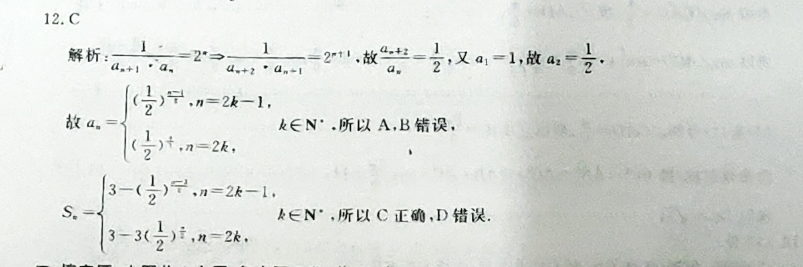 12. C
解析:\frac{1}{a_{n+1}·a_n}=2^n⇒\frac{1}{a_{n+2}·a_{n+1}}=2^{n+1},故\frac{a_{n+2}}{a_n}=\frac{1}{2},又 a_1=1,故 a_2=\frac{1}{2}.
故 a_n=\begin{cases}(\frac{1}{2})^{\frac{n-1}{2}},n=2k-1,\\(\frac{1}{2})^{\frac{n}{2}},n=2k,\end{cases} k∈N^*,所以 A,B 错误,
S_n=\begin{cases}3-(\frac{1}{2})^{\frac{n-3}{2}},n=2k-1,\\3-3(\frac{1}{2})^{\frac{n}{2}},n=2k,\end{cases} k∈N^*,所以 C 正确,D 错误.